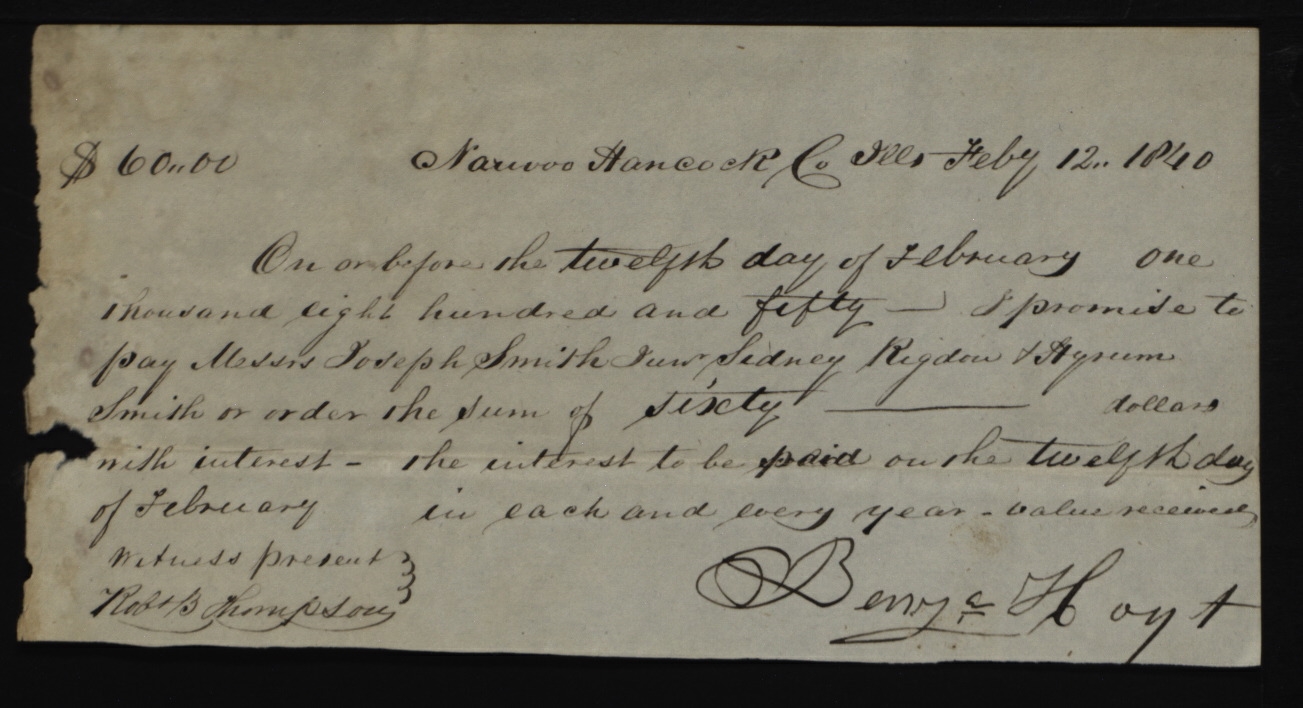 $ 60,,00 Nauvoo Hancock Co Ills Feby 12,, 1840
On or before the twelfth day of February one
thousand eight hundred and fifty — I promise to
pay Messrs Joseph Smith Junr Sidney Rigdon & Hyrum
Smith or order the sum of sixty ——— dollars
with interest - the interest to be paid on the twelfth day
of February in each and every year - value received
Witness present
Robt B Thompson
Benjn Hoyt